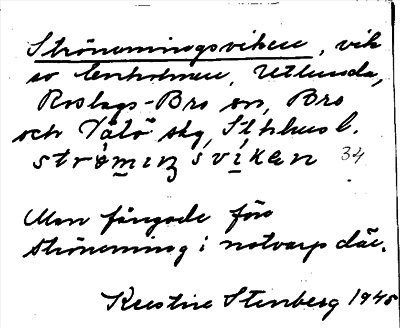 Strömmingsviken, vik
so Enholmen, Utlunda,
Roslags-Bro sn, Bro
och Vätö skg, Sthlms l.
strömiŋsvíken 34
Man fångade förr
strömming i notvarp där.
Kerstin Stenberg 1945